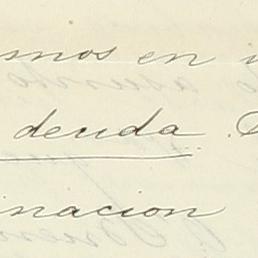 mos en
deuda.
inacion